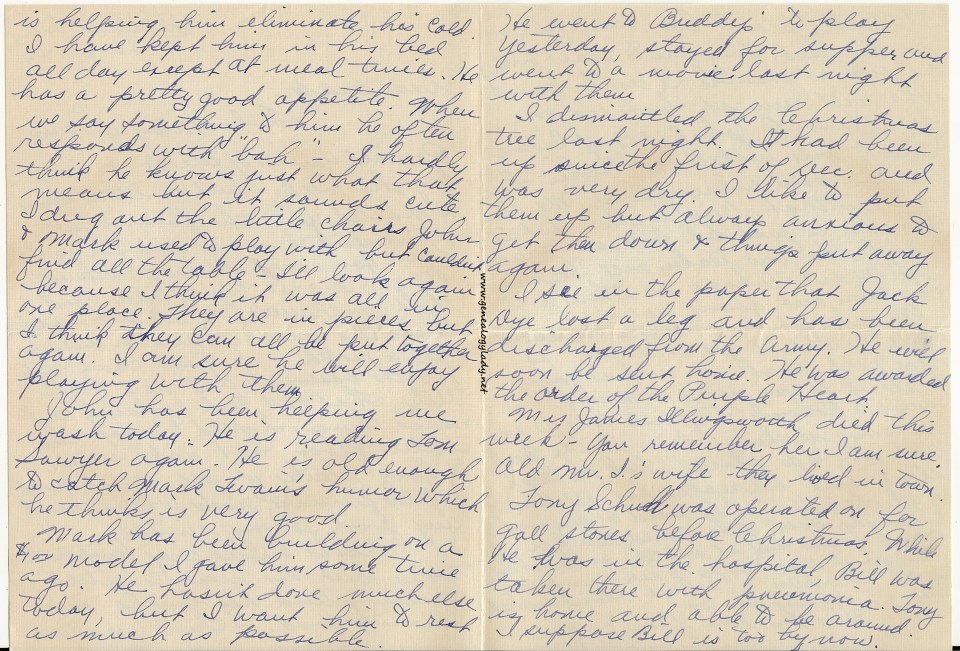 is helping him eliminate his cold.
I have kept him in his bed
all day except at meal times. He
has a pretty good appetite. When
we say something to him he often
responds with "bah" - I hardly
think he knows just what that
means but it sounds cute
I dug out the little chairs John
& Mark used to play with but couldn't
find all the table - I'll look again
because I think it was all in
one place. They are in pieces but
I think they can all be put together
again. I am sure he will enjoy
playing with them
John has been helping me
wash today. He is reading Tom
Sawyer again. He is old enough
to catch Mark Twain's humor which
he thinks is very good.
Mark has been building on a
model I gave him some time
ago. He hasn't done much else
today, but I want him to rest
as much as possible.
www.genealogylady.net
He went to Buddy's to play
yesterday, stayed for supper and
went to a movie last night
with them
I dismantled the Christmas
tree last night. It had been
up since the frist of Dec. and
was very dry. I like to put
them up but always anxious to
get then down & things put away
again.
I see in the paper that Jack
Dye lost a leg and has been
discharged from the Army. He will
soon be sent home. He was awarded
the order of the Purple Heart.
Mrs James Illingsworth died this
week - You remember her I am sure.
Old Mr. I.'s wife they lived in town.
Tony Schull was operated on for
gall stones before Christmas. While
He was in the hospital, Bill was
taken there with pneumonia. Tony
is home and able to be around.
I suppose Bill is too by now.